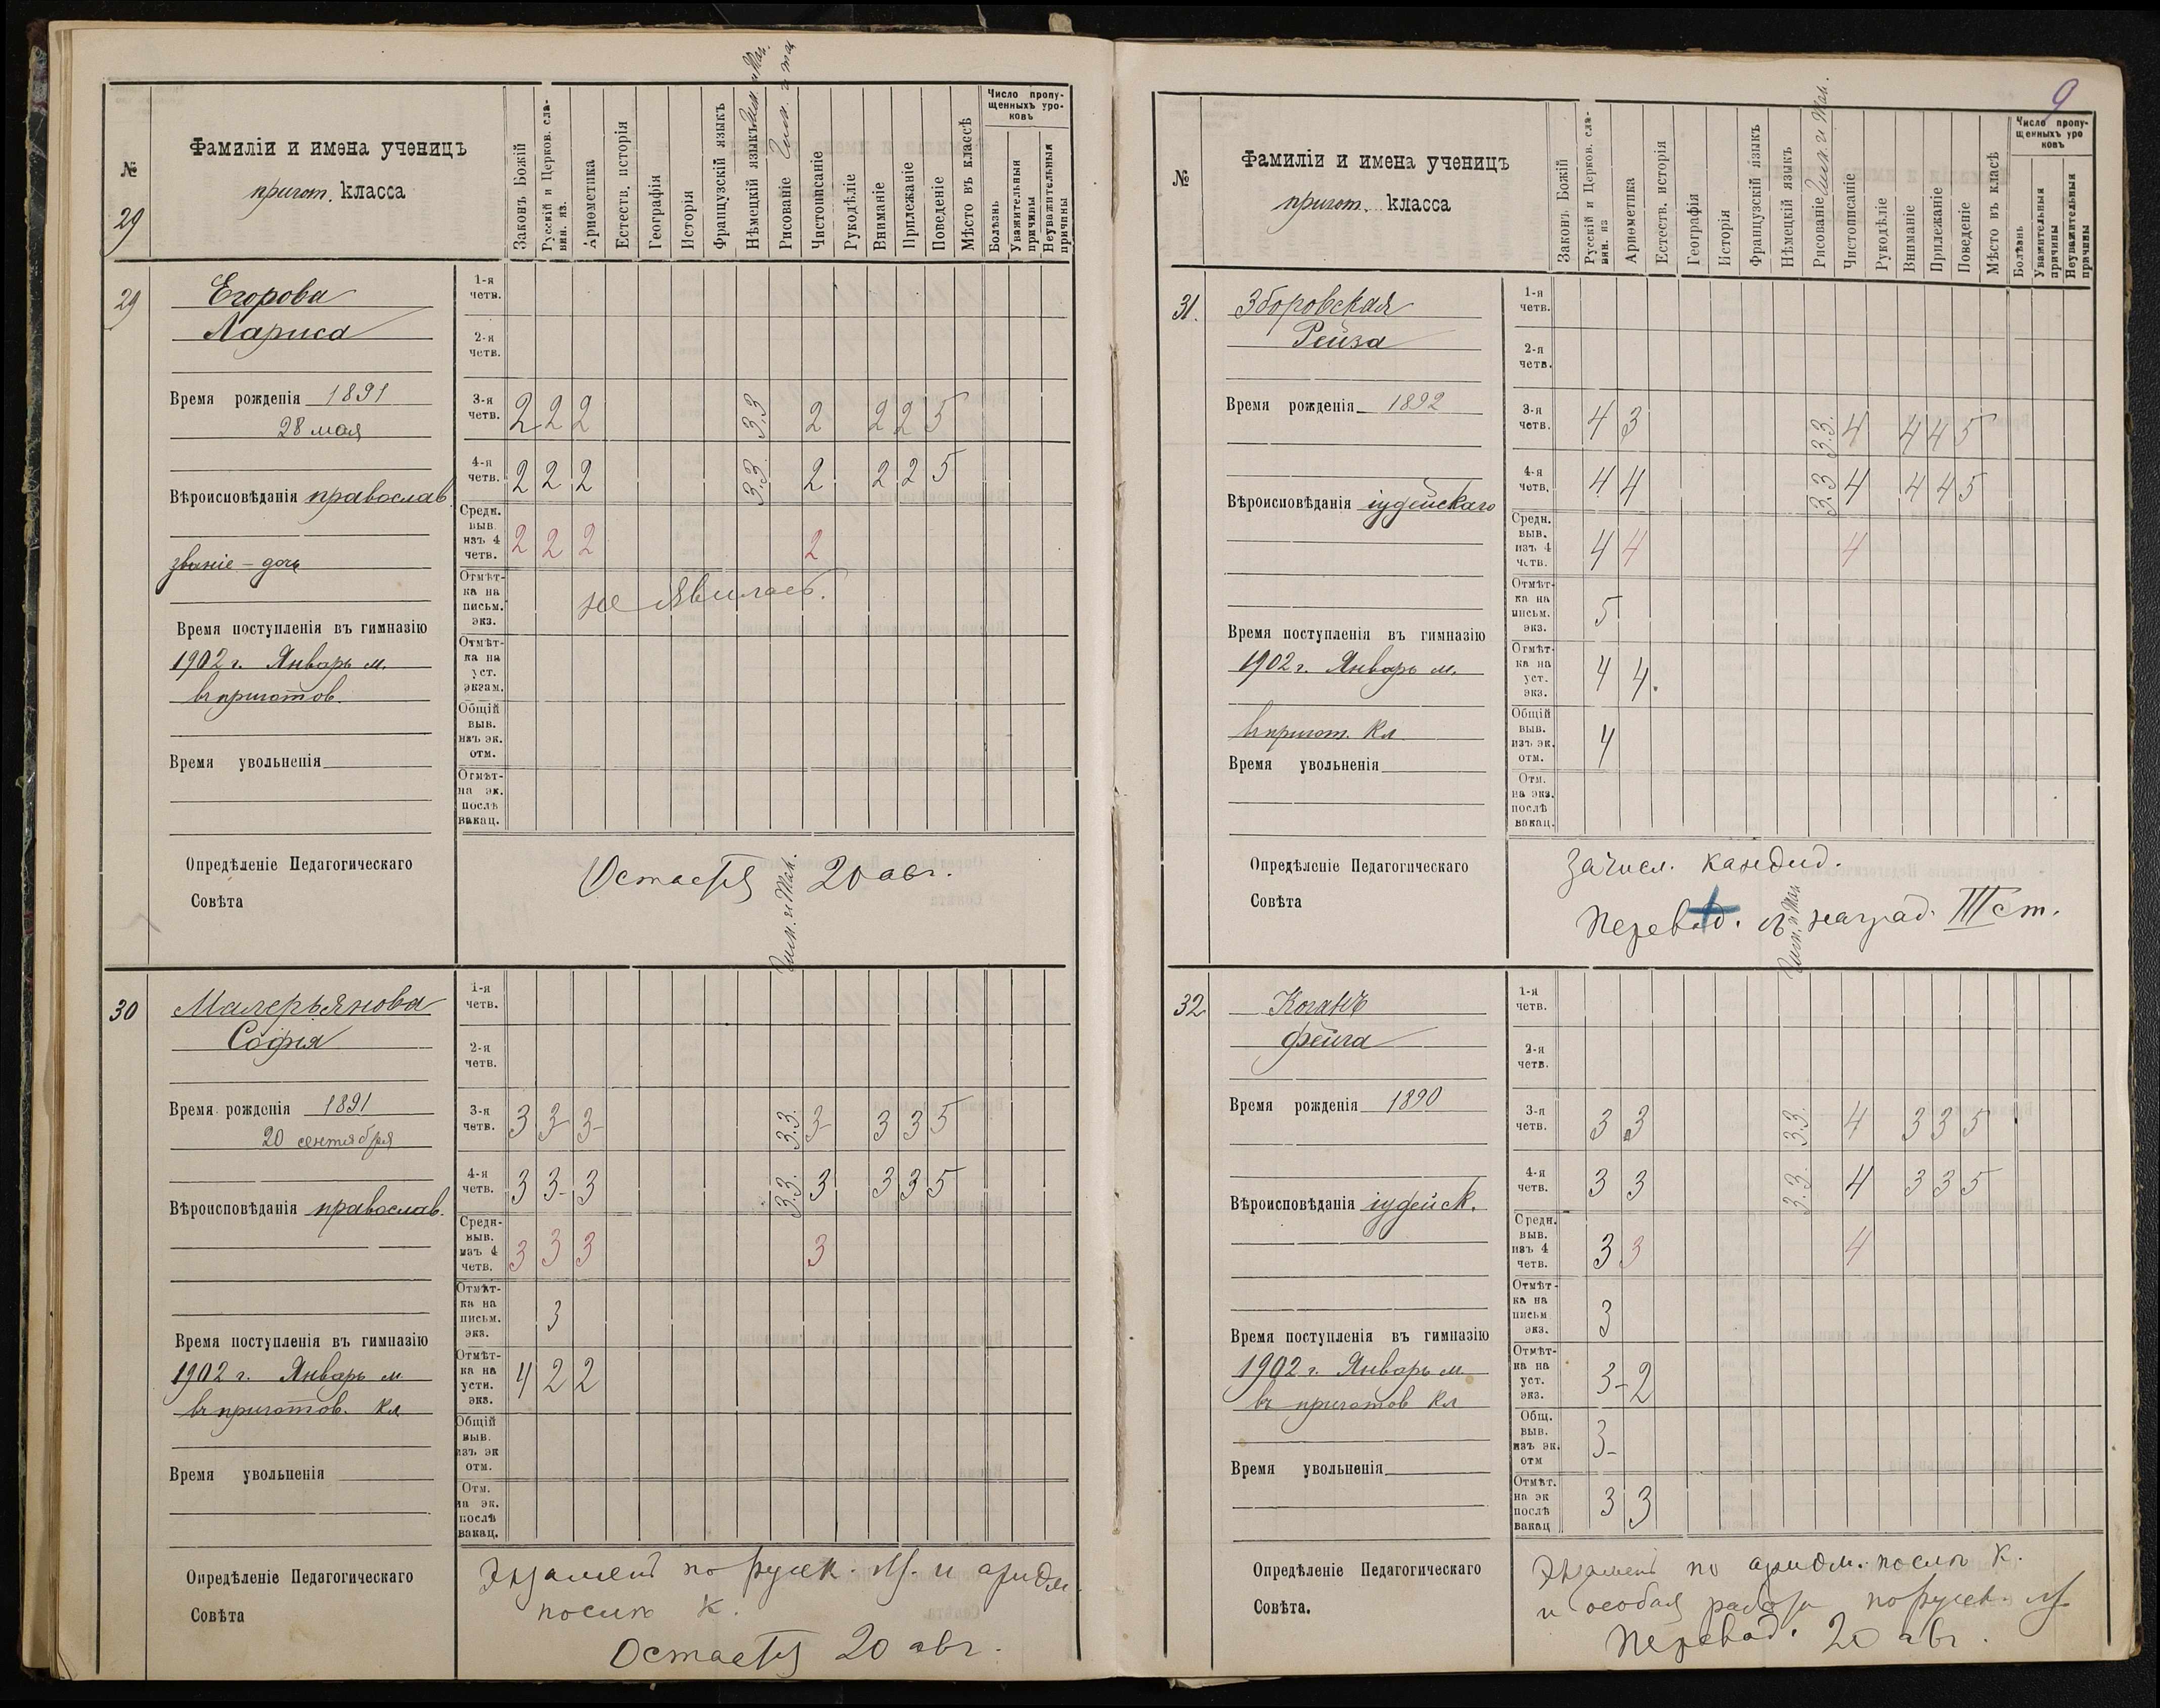 №
29
Фамиліи и имена ученицъ
пригот. класса
Законъ Божій
Русскій и Церков. сла-
вян. яз.
Ариѳметика
Естеств. исторія
Географія
Исторія
Французскій языкъ
Нѣмецкій языкъ
Рисованіе
Чистописаніе
Рукодѣліе
Вниманіе
Прилежаніе
Поведеніе
Мѣсто въ классѣ
Число пропу-
щенныхъ уро-
ковъ
Болѣзнь
Уважительныя
причины
Неуважительныя
причины
29
Егорова
Лариса
Время рожденія 1891
28 мая
Вѣроисповѣданія православ.
званіе - дочь
Время поступленія въ гимназію
1902 г. Январь м.
въ приготов.
Время увольненія
1-я
четв.
2-я
четв.
3-я
четв. 2 2 2 3.3 2 2 2 5
4-я
четв. 2 2 2 3.3. 2 2 2 5
Средн.
выв.
изъ 4
четв. 2 2 2 2
Отмѣт-
ка на
письм.
экз.
не явилась.
Отмѣт-
ка на
уст.
экзам.
Общій
выв.
изъ эк.
отм.
Отмѣт-
на эк.
послѣ
вакац.
Опредѣленіе Педагогическаго
Совѣта
Остается 20 авг.
Гим. и Тан.
30
Малерьянова
Софія
Время рожденія 1891
20 сентября
Вѣроисповѣданія православ.
Время поступленія въ гимназію
1902 г. Январь м.
въ приготов. кл
Время увольненія
1-я
четв.
2-я
четв.
3-я
четв. 3 3- 3- 3.3. 3- 3 3 5
4-я
четв. 3 3- 3 3.3. 3 3 3 5
Средн-
выв.
изъ 4
четв. 3 3 3 3
Отмѣт-
ка на
письм.
экз. 3
Отмѣт-
ка на
устн.
экз. 4 2 2
Общій
выв.
изъ эк
отм.
Отм.
на эк.
послѣ
вакац.
Опредѣленіе Педагогическаго
Совѣта
Экзаменъ по русск. яз. и ариѳм.
послѣ к.
Остается 20 авг.
9
№
Фамиліи и имена ученицъ
пригот. класса
Законъ Божій
Русскій и Церков. сла-
вян. яз
Ариѳметика
Естеств. исторія
Географія
Исторія
Французскій языкъ
Нѣмецкій языкъ
Рисованіе Гим. и Тан.
Чистописаніе
Рукодѣліе
Вниманіе
Прилежаніе
Поведеніе
Мѣсто въ классѣ
Число пропу-
щенныхъ уро
ковъ
Болѣзнь
Уважительныя
причины
Неуважительныя
причины
31.
Зборовская
Рейза
Время рожденія 1892
Вѣроисповѣданія іудейскаго
Время поступленія въ гимназію
1902 г. Январь м.
въ пригот. кл
Время увольненія
1-я
четв.
2-я
четв.
3-я
четв. 4 3 3.3. 4 4 4 5
4-я
четв. 4 4 3.3 4 4 4 5
Средн.
выв.
изъ 4
четв. 4 4 4
Отмѣт-
ка на
письм.
экз. 5
Отмѣт-
ка на
уст.
экз. 4 4.
Общій
выв.
изъ эк.
отм. 4
Отм.
на экз.
послѣ
вакац.
Опредѣленіе Педагогическаго
Совѣта
Зачисл. кандид.
Перевод. съ наград. III ст.
Гим. и Тан
32
Коганъ
Фейга
Время рожденія 1890
Вѣроисповѣданія іудейск.
Время поступленія въ гимназію
1902 г. Январь м.
въ приготов кл
Время увольненія
1-я
четв.
2-я
четв.
3-я
четв. 3 3 3.3. 4 3 3 5
4-я
четв. 3 3 3.3. 4 3 3 5
Средн.
выв.
изъ 4
четв. 3 3 4
Отмѣт-
ка на
письм
экз. 3
Отмѣт-
ка на
уст.
экз. 3- 2
Общ.
выв.
изъ эк.
отм 3-
Отмѣт.
на эк
послѣ
вакац 3 3
Опредѣленіе Педагогическаго
Совѣта.
Экзаменъ по ариѳм. послѣ к.
и особая работа по русск. яз
Перевод. 20 авг.